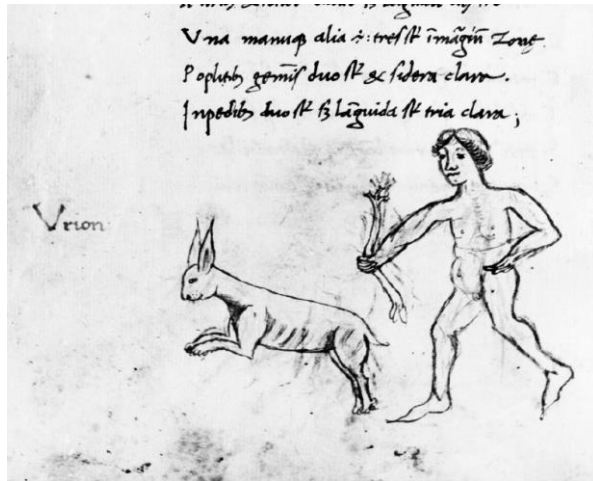 Vna manuqꝫ alia ÷: tres st̄ īmāgiñ Zonę.
Poplitibꝫ gemīs duo st̄ & sidera clara.
Inpedibꝫ duo st̄ sꝫ lāguida st̄ tria clara;
Vrion